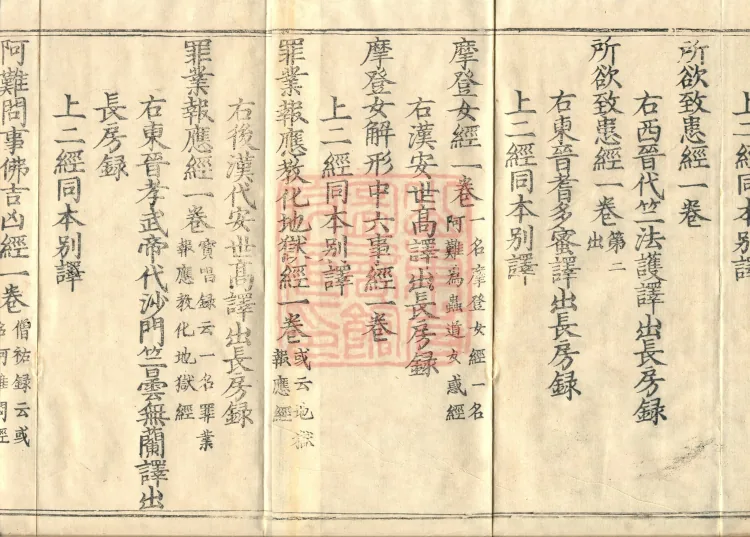 上二經同本別譯
所欲致患經一卷
右西晉代竺法護譯出長房録
所欲致患經一卷第二出
右東晉耆多蜜譯出長房録
上二經同本別譯
摩登女經一卷一名摩登女經一名阿難為蠱道女惑經
右漢安世髙譯出長房録
摩登女解形中六事經一卷
上二經同本別譯
罪業報應教化地獄經一卷或云地獄報應經
右後漢代安世髙譯出長房録
罪業報應經一卷寶唱録云一名罪業報應教化地獄經
右東晉孝武帝代沙門竺曇無蘭譯出
長房録
上二經同本別譯
阿難問事佛吉凶經一卷僧祐録云或名阿難問經